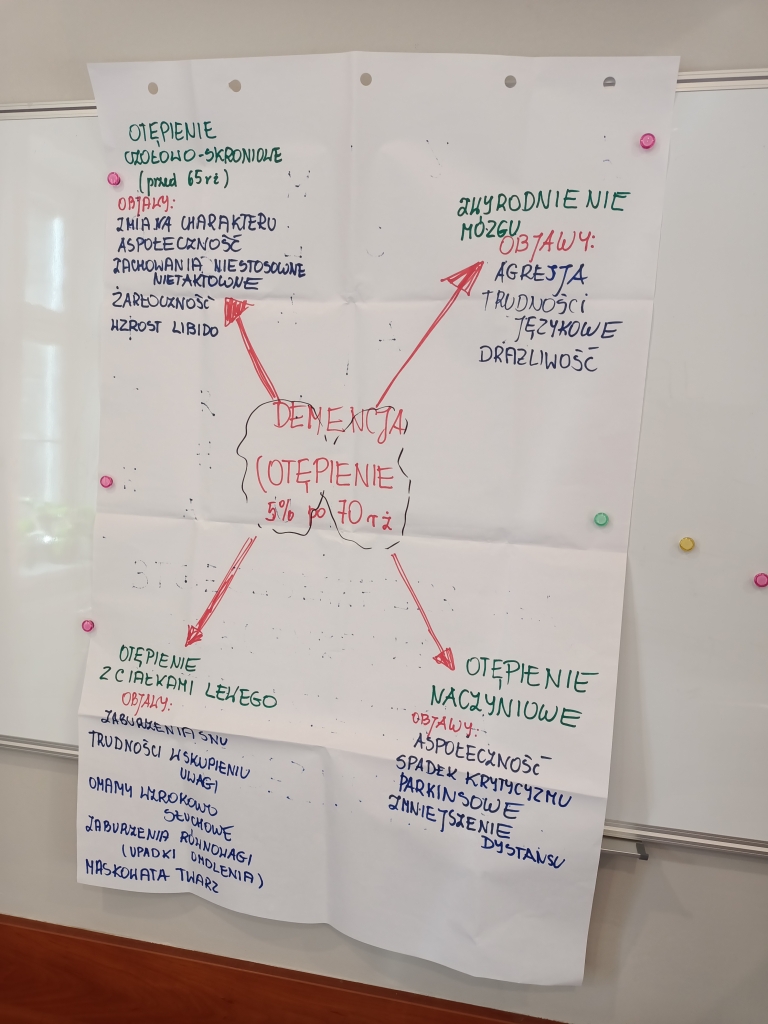 OTĘPIENIE
CZOŁOWO-SKRONIOWE
(przed 65 rż)
OBJAWY:
ZMIANA CHARAKTERU
ASPOŁECZNOŚĆ
ZACHOWANIA NIESTOSOWNE
NIETAKTOWNE
ŻARŁOCZNOŚĆ
WZROST LIBIDO
ZWYRODNIENIE
MÓZGU
OBJAWY:
AGRESJA
TRUDNOŚCI
JĘZYKOWE
DRAŻLIWOŚĆ
DEMENCJA
(OTĘPIENIE
5% po 70 rż
OTĘPIENIE
Z CIAŁKAMI LEWEGO
OBJAWY:
ZABURZENIA SNU
TRUDNOŚCI W SKUPIENIU
UWAGI
OMAMY WZROKOWO
SŁUCHOWE
ZABURZENIA RÓWNOWAGI
(UPADKI OMDLENIA)
MASKOWATA TWARZ
OTĘPIENIE
NACZYNIOWE
OBJAWY:
ASPOŁECZNOŚĆ
SPADEK KRYTYCYZMU
PARKINSOWE
ZMNIEJSZENIE
DYSTANSU